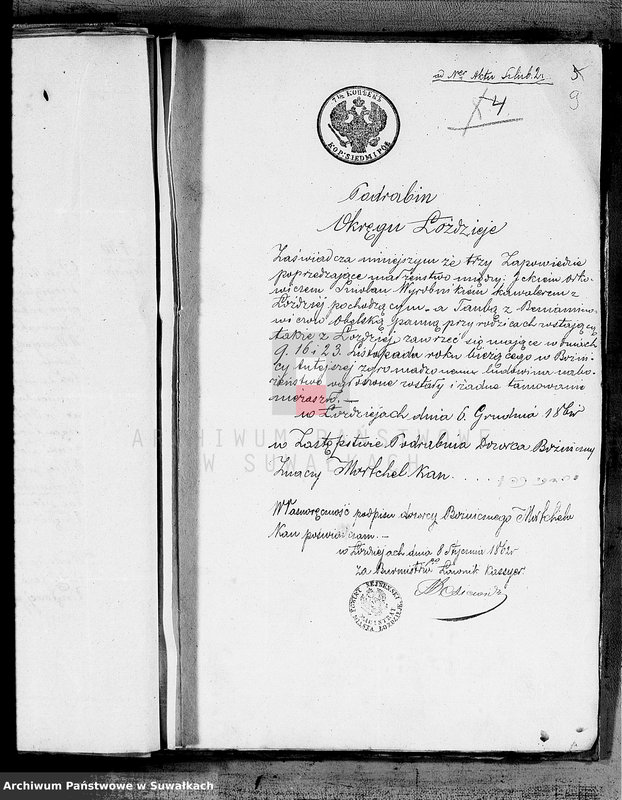 ad Nrm Aktu Szlub. 2.
9
4
7½ КОПѢЕКЪ
KOP. SIEDM I PÓŁ
Podrabin
Okręgu Łoździeje
Zaświadcza niniejszym że trzy Zapowiedzie
poprzedzające małżeństwo między Ickiem
Smolan Wyrobnikiem kawalerem z
Łoździej pochodzącym a Taubą z
Obelską panną przy rodzicach zostającą
także z Łoździej, zawrzeć się mające w dniach
9. 16 i 23 Listopada roku bieżącego w Bożni-
cy tutejszej zgromadzonemu ludowi na nabo-
żeństwo ogłoszone zostały i żadne tamowanie
nie zaszło. —
w Łoździejach dnia 6. Grudnia 1861r
w Zastępstwie Podrabina Dozorca Bożniczny
Znaczy Mortchel Kan
Własnoręczność podpisu dozorcy Bożnicznego Mortchela
Kan poświadczam. —
w Łoździejach dnia 8 Stycznia 1862r
Za Burmistrza Ławnik Kassyer
POWIAT SEJNEŃSKI
MAGISTRAT
MIASTA ŁOZDZIEJE
ARCHIWUM PAŃSTWOWE
W SUWAŁKACH
Archiwum Państwowe w Suwałkach